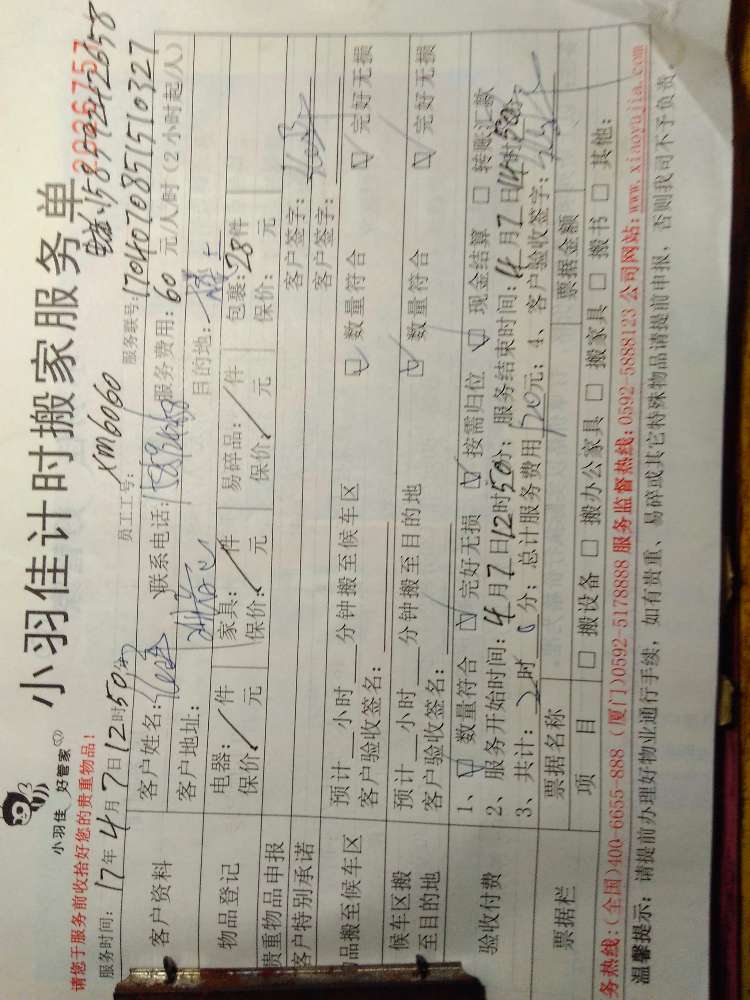 小羽佳 好管家
小羽佳计时搬家服务单
请您于服务前收拾好您的贵重物品！
服务时间：17年4月7日12时50分
员工工号：xm6060
服务联号：170407085151 0327
客户资料
客户姓名：
联系电话：
服务费用：60元/人/时（2小时起/人）
客户地址：
目的地：
物品登记
电器：/件 家具：/件 易碎品：/件 包裹：28件
保价：/元 保价：/元 保价：/元 保价： 元
贵重物品申报
客户签字：
客户特别承诺
客户签字：
品搬至候车区
预计__小时__分钟搬至候车区 ☑数量符合 ☑完好无损
客户验收签名：
候车区搬至目的地
预计__小时__分钟搬至目的地 ☑数量符合 ☑完好无损
客户验收签名：
验收付费
1、☑数量符合 ☑完好无损 ☑按需归位 ☑现金结算 □转账汇款
2、服务开始时间：4月7日12时50分；服务结束时间：4月7日14时50分；
3、共计：2时0分；总计服务费用120元；4、客户验收签字：
票据栏
票据名称 票据金额
项目 □搬设备 □搬办公家具 □搬家具 □搬书 □其他：
务热线：(全国)400-6655-888 (厦门)0592-5178888 服务监督热线：0592-5888123 公司网站：www.xiaoyujia.com
温馨提示：请提前办理好物业通行手续，如有贵重、易碎或其它特殊物品请提前申报，否则我司不予负责。